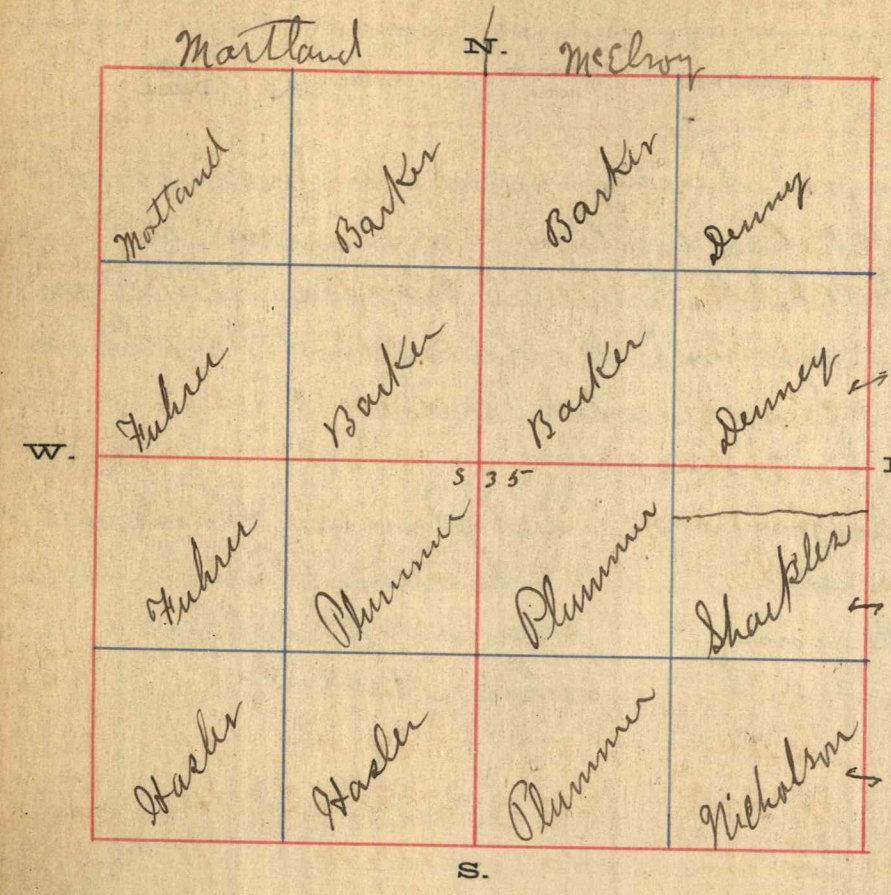 Martland N. McElroy
Martland Barker Barker Denny
Fuhrer Barker Barker Denney
W.
S 35
Fuhrer Plummer Plummer Sharkles
Hasler Hasler Plummer Nicholson
S.